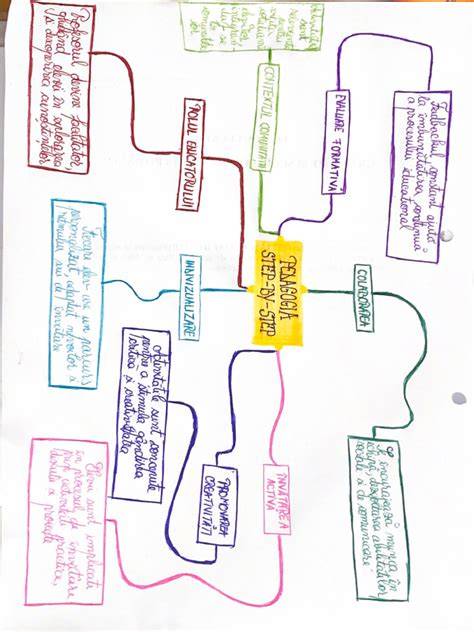 PEDAGOGIA
STEP-BY-STEP
COLABORAREA
Se încurajează munca în
echipă, dezvoltarea abilităților
sociale și de comunicare
ÎNVĂȚAREA
ACTIVĂ
Elevii sunt implicați
în procesul de învățare
prin activități practice,
PROMOVAREA
CREATIVITĂȚII
Activitățile sunt concepute
pentru a stimula gândirea
critică și creativitatea
INDIVIZUALIZARE
Fiecare elev are un parcurs
personalizat adaptat nevoilor și
ritmului său de învățare
ROLUL EDUCATORULUI
Profesorul devine facilitator,
ghidând elevii în explorarea
și descoperirea
cunoștințelor
CONTEXTUL COMUNITĂȚII
sunt
EVALUARE FORMATIVĂ
Feedbackul constant ajută
la îmbunătățirea continuă
a procesului educațional